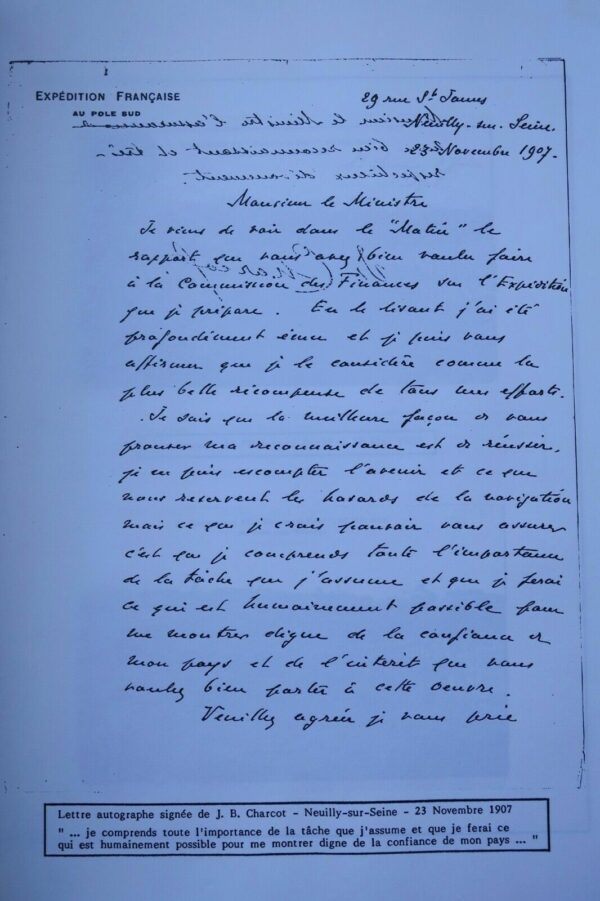 EXPÉDITION FRANÇAISE
AU POLE SUD
29 rue St James
Neuilly-sur-Seine.
23 Novembre 1907.
Monsieur le Ministre
Je viens de voir dans le "Matin" le
rapport que vous avez bien voulu faire
à la Commission des Finances sur l'Expédition
que je prépare. En le lisant j'ai été
profondément ému et je puis vous
affirmer que je le considère comme la
plus belle récompense de tous mes efforts.
Je sais que la meilleure façon de vous
prouver ma reconnaissance est de réussir,
je ne puis escompter l'avenir et ce que
nous reservent les hasards de la navigation
mais ce que je crois pouvoir vous assurer
c'est que je comprends toute l'importance
de la tâche que j'assume et que je ferai
ce qui est humainement possible pour
me montrer digne de la confiance de
mon pays et de l'interêt que vous
voulez bien porter à cette oeuvre.
Veuillez agréer je vous prie
Lettre autographe signée de J. B. Charcot - Neuilly-sur-Seine - 23 Novembre 1907
" ... je comprends toute l'importance de la tâche que j'assume et que je ferai ce
qui est humainement possible pour me montrer digne de la confiance de mon pays ... "